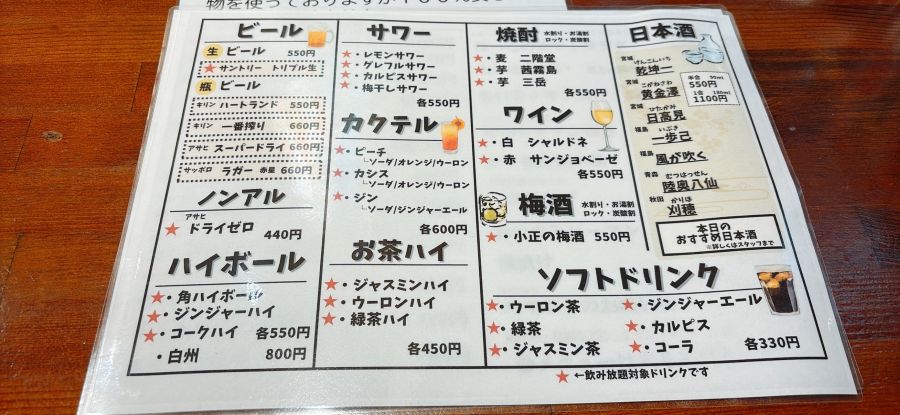 ビール
生 ビール 550円
★サントリー トリプル生
瓶 ビール
キリン ハートランド 550円
キリン 一番搾り 660円
アサヒ スーパードライ 660円
サッポロ ラガー 赤星 660円
ノンアル
アサヒ
★ ドライゼロ 440円
ハイボール
★・角ハイボール
★・ジンジャーハイ
★・コークハイ 各550円
・白州 800円
サワー
★・レモンサワー
★・グレフルサワー
★・カルピスサワー
★・梅干しサワー
各550円
カクテル
★・ピーチ
└ソーダ/オレンジ/ウーロン
★・カシス
└ソーダ/オレンジ/ウーロン
★・ジン
└ソーダ/ジンジャーエール
各600円
お茶ハイ
★・ジャスミンハイ
★・ウーロンハイ
★・緑茶ハイ
各450円
焼酎 水割り・お湯割
ロック・炭酸割
★・麦 二階堂
★・芋 茜霧島
★・芋 三岳
各550円
ワイン
★・白 シャルドネ
★・赤 サンジョベーゼ
各550円
梅酒 水割り・お湯割
ロック・炭酸割
★・小正の梅酒 550円
日本酒
宮城 けんこんいち
乾坤一
宮城 こがねさわ
黄金澤
半合 90ml
550円
1合 180ml
1100円
宮城 ひたかみ
日高見
福島 いぶき
一歩己
福島
風が吹く
青森 むつはっせん
陸奥八仙
秋田 かりほ
刈穂
本日の
おすすめ日本酒
※詳しくはスタッフまで
ソフトドリンク
★・ウーロン茶
★・緑茶
★・ジャスミン茶
★・ジンジャーエール
★・カルピス
★・コーラ 各330円
★←飲み放題対象ドリンクです